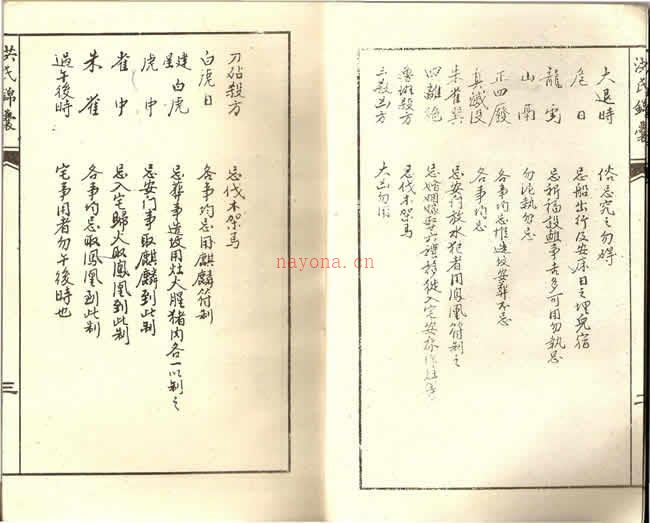 洪氏錦囊
大退時 俗忌究之勿碍
危日 忌船出行及安床日之埋兒宿
龍虎 忌祈福設醮事吉多可用勿執忌
山鬲 勿泥執勿忌
正四廢 各事均忌惟造坟安葬不忌
真滅没 各事均忌
朱雀異 忌安门放水犯者用鳳凰符制之
四離絕 忌婚姻嫁娶六禮移徙入宅安床
魯班殺方 忌伐木架馬
三殺凶方 大凶勿用
二
刀砧殺方 忌伐木架馬
白虎日 各事均忌用麒麟符制
建星白虎 忌葬事造坟用灶火腥猪肉各一以制之
虎中 忌安门事取麒麟到此制
雀中 忌入宅歸火取鳳凰到此制
朱雀 各事均忌取鳳凰到此制
過午後時 宅事用者勿午後時也
洪氏錦囊
三
nayona.cn